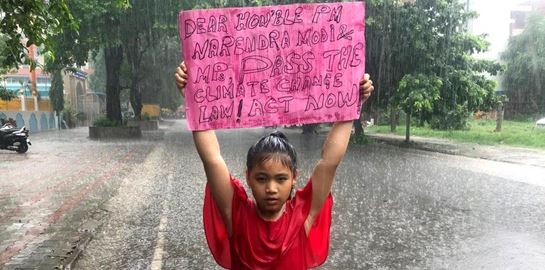 DEAR HON'BLE PM
NARENDRA MODI &
MPs, PASS THE
CLIMATE CHANGE
LAW! ACT NOW!